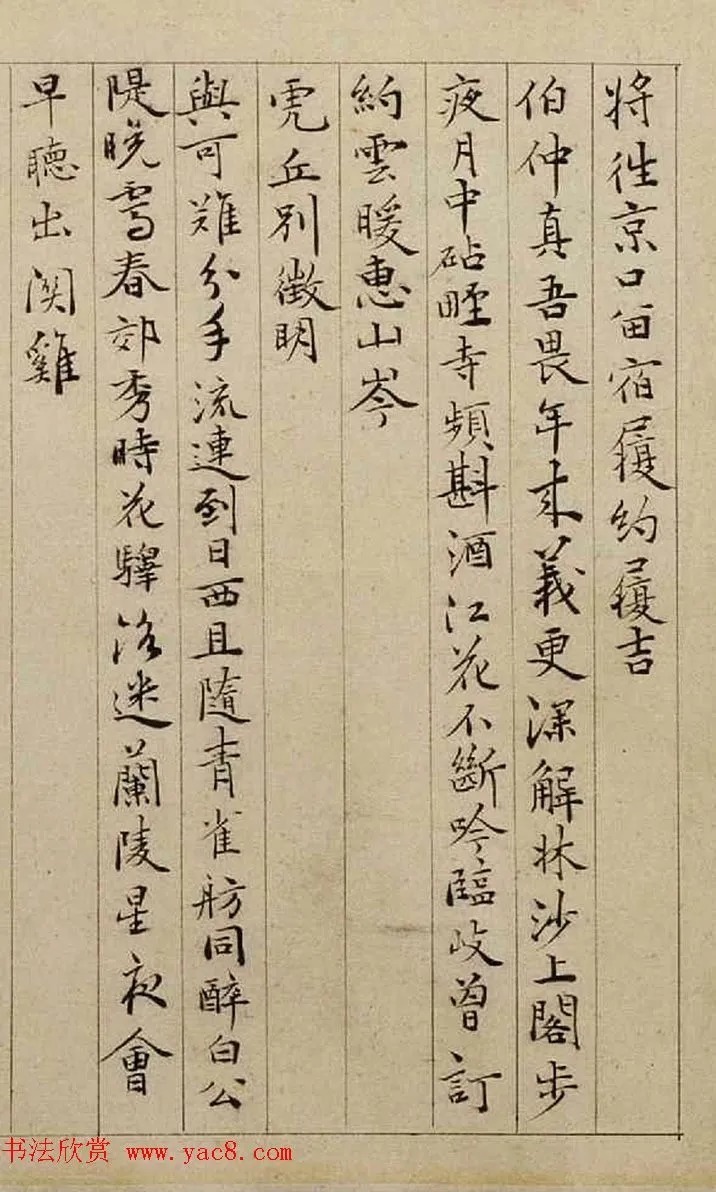 将往京口畱宿履约履吉
伯仲真吾畏年来義更深解牀沙上閣步
夜月中砧野寺頻斟酒江花不斷吟臨岐曾訂
約雲暖惠山岑
虎丘别徵明
與可難分手流連到日西且隨青雀舫同醉白公
隄晓春郊秀時花驛路迷蘭陵星夜會
早聽出関雞
书法欣赏 www.yac8.com